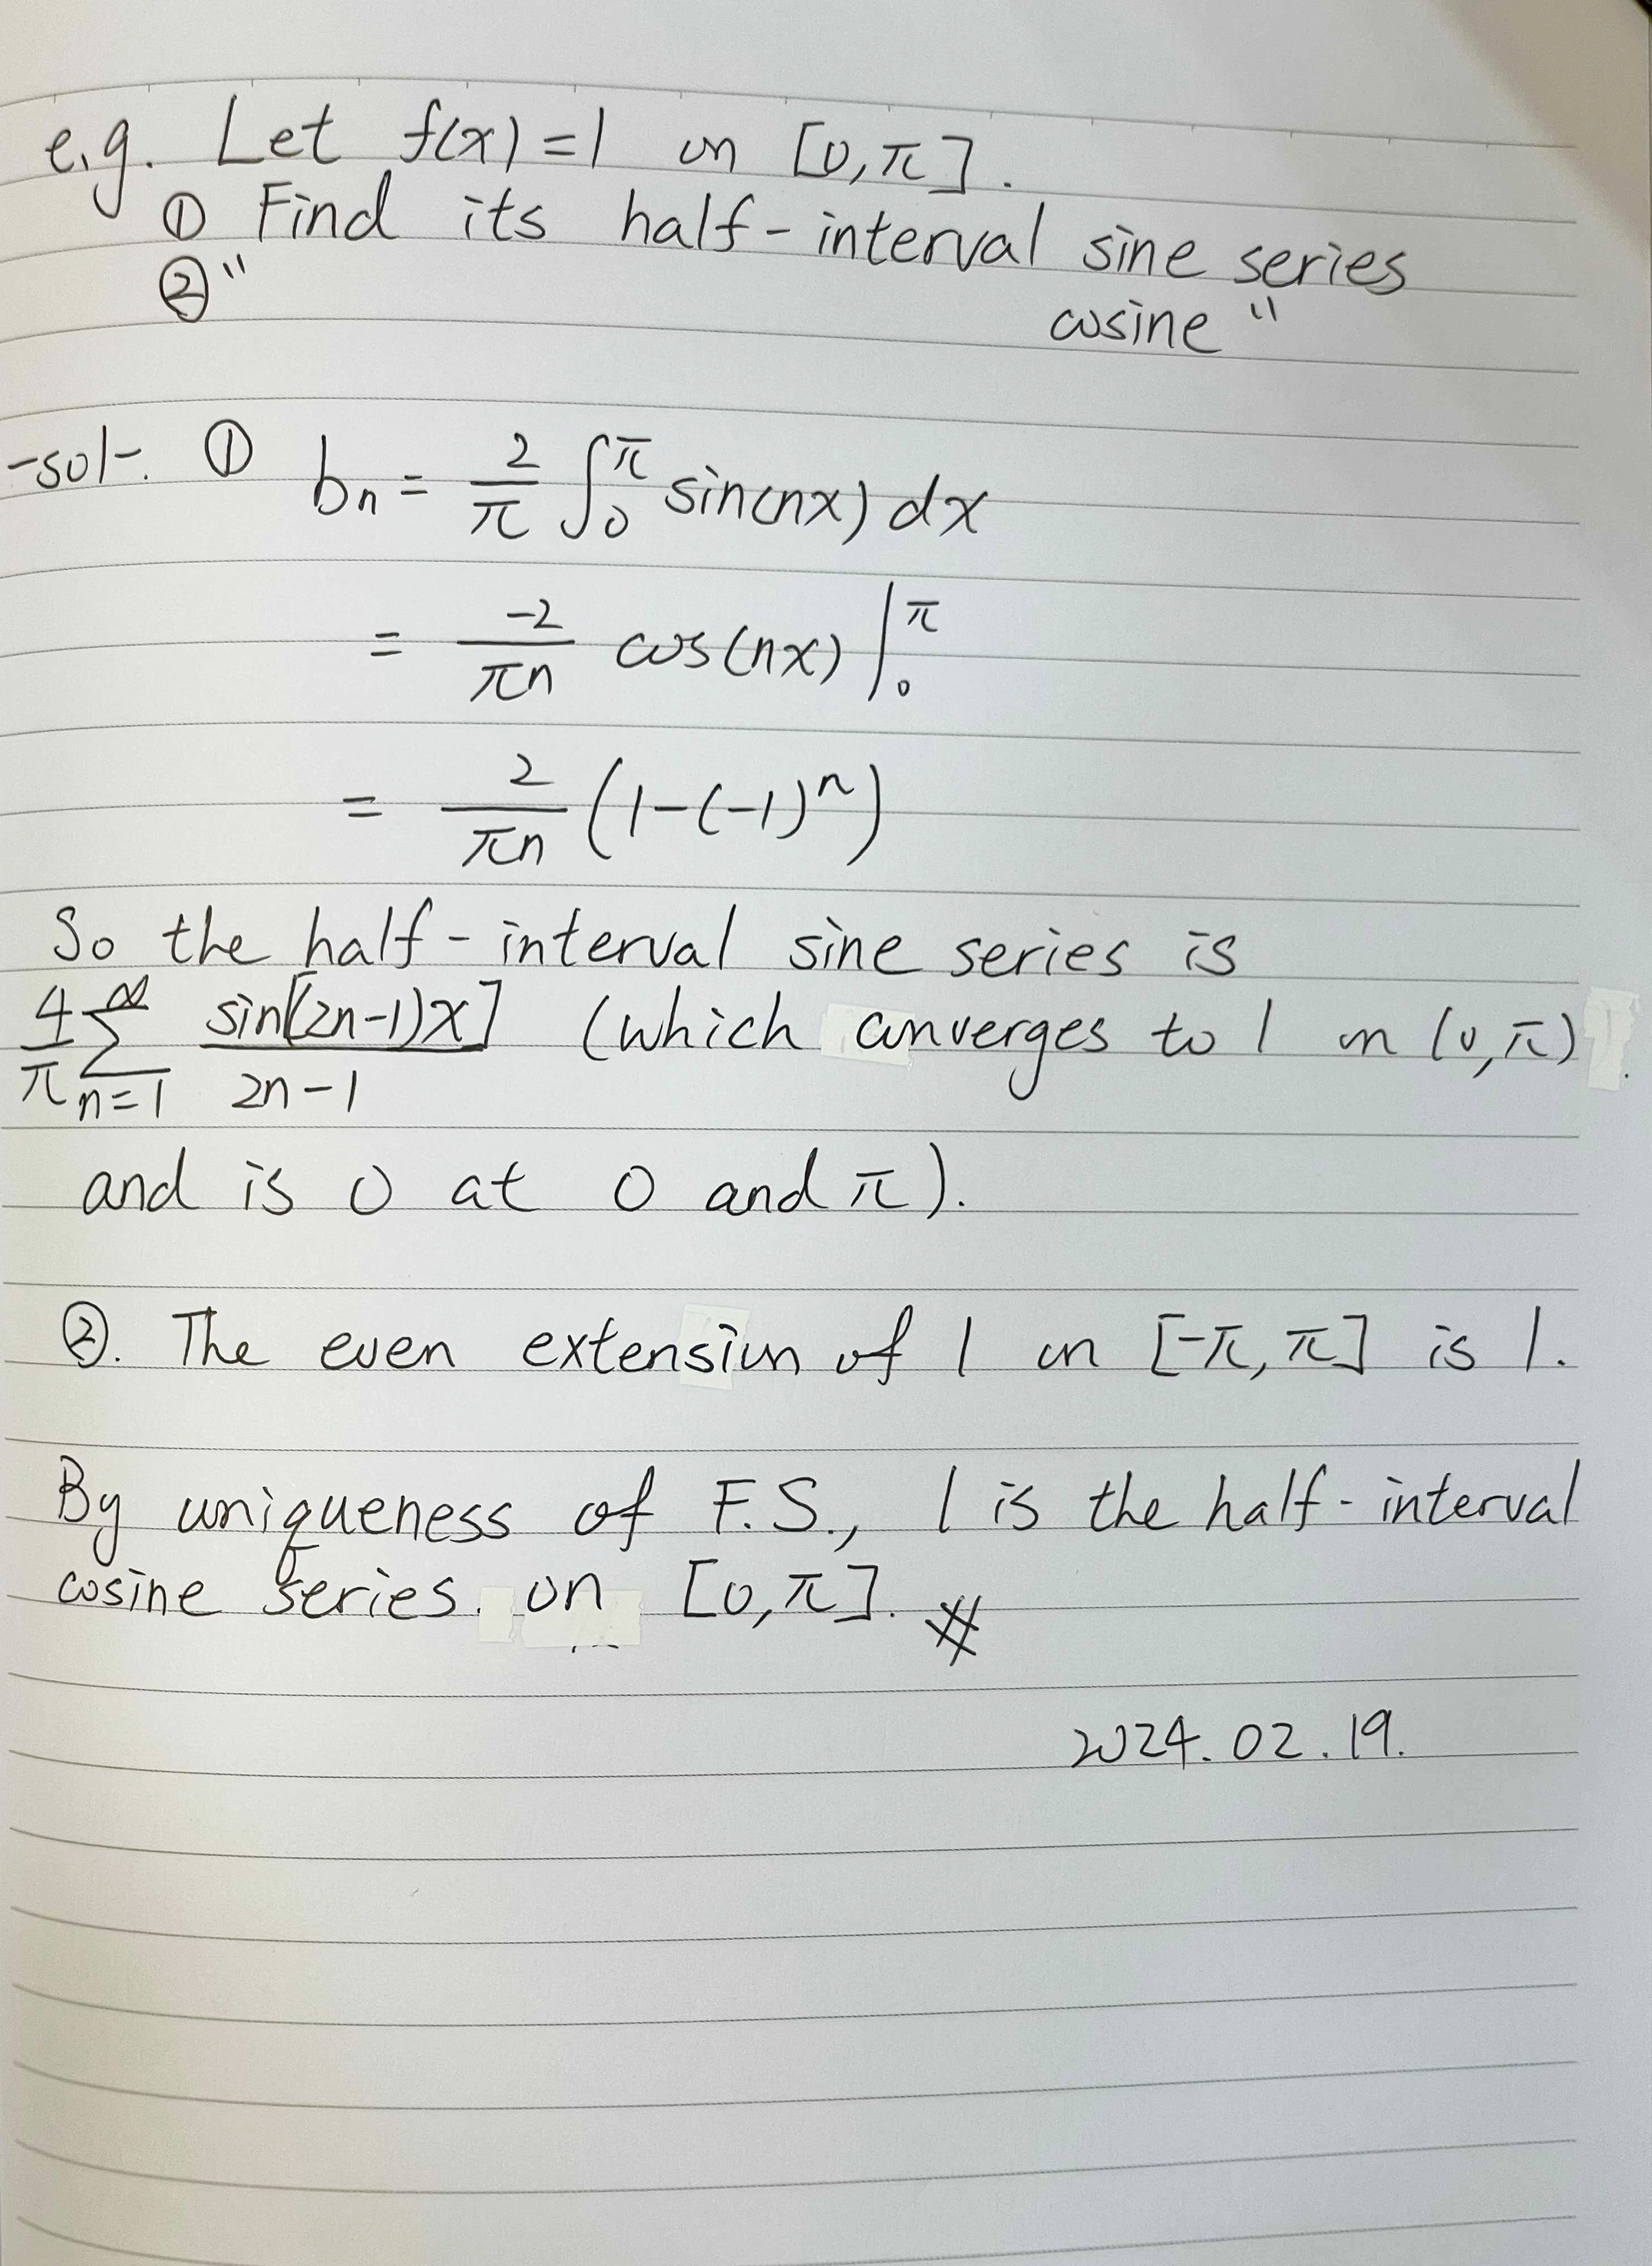 e.g. Let f(x)=1 on [0,π].
① Find its half-interval sine series
② " cosine "
-sol-. ① bₙ = 2/π ∫₀^π sin(nx) dx
= -2/πn cos(nx) |₀^π
= 2/πn (1-(-1)ⁿ)
So the half-interval sine series is
4/π ∑_{n=1}^∞ sin[(2n-1)x]/2n-1 (which converges to 1 on (0,π)
and is 0 at 0 and π).
②. The even extension of 1 on [-π,π] is 1.
By uniqueness of F.S., 1 is the half-interval
cosine series. on [0,π]. #
2024.02.19.